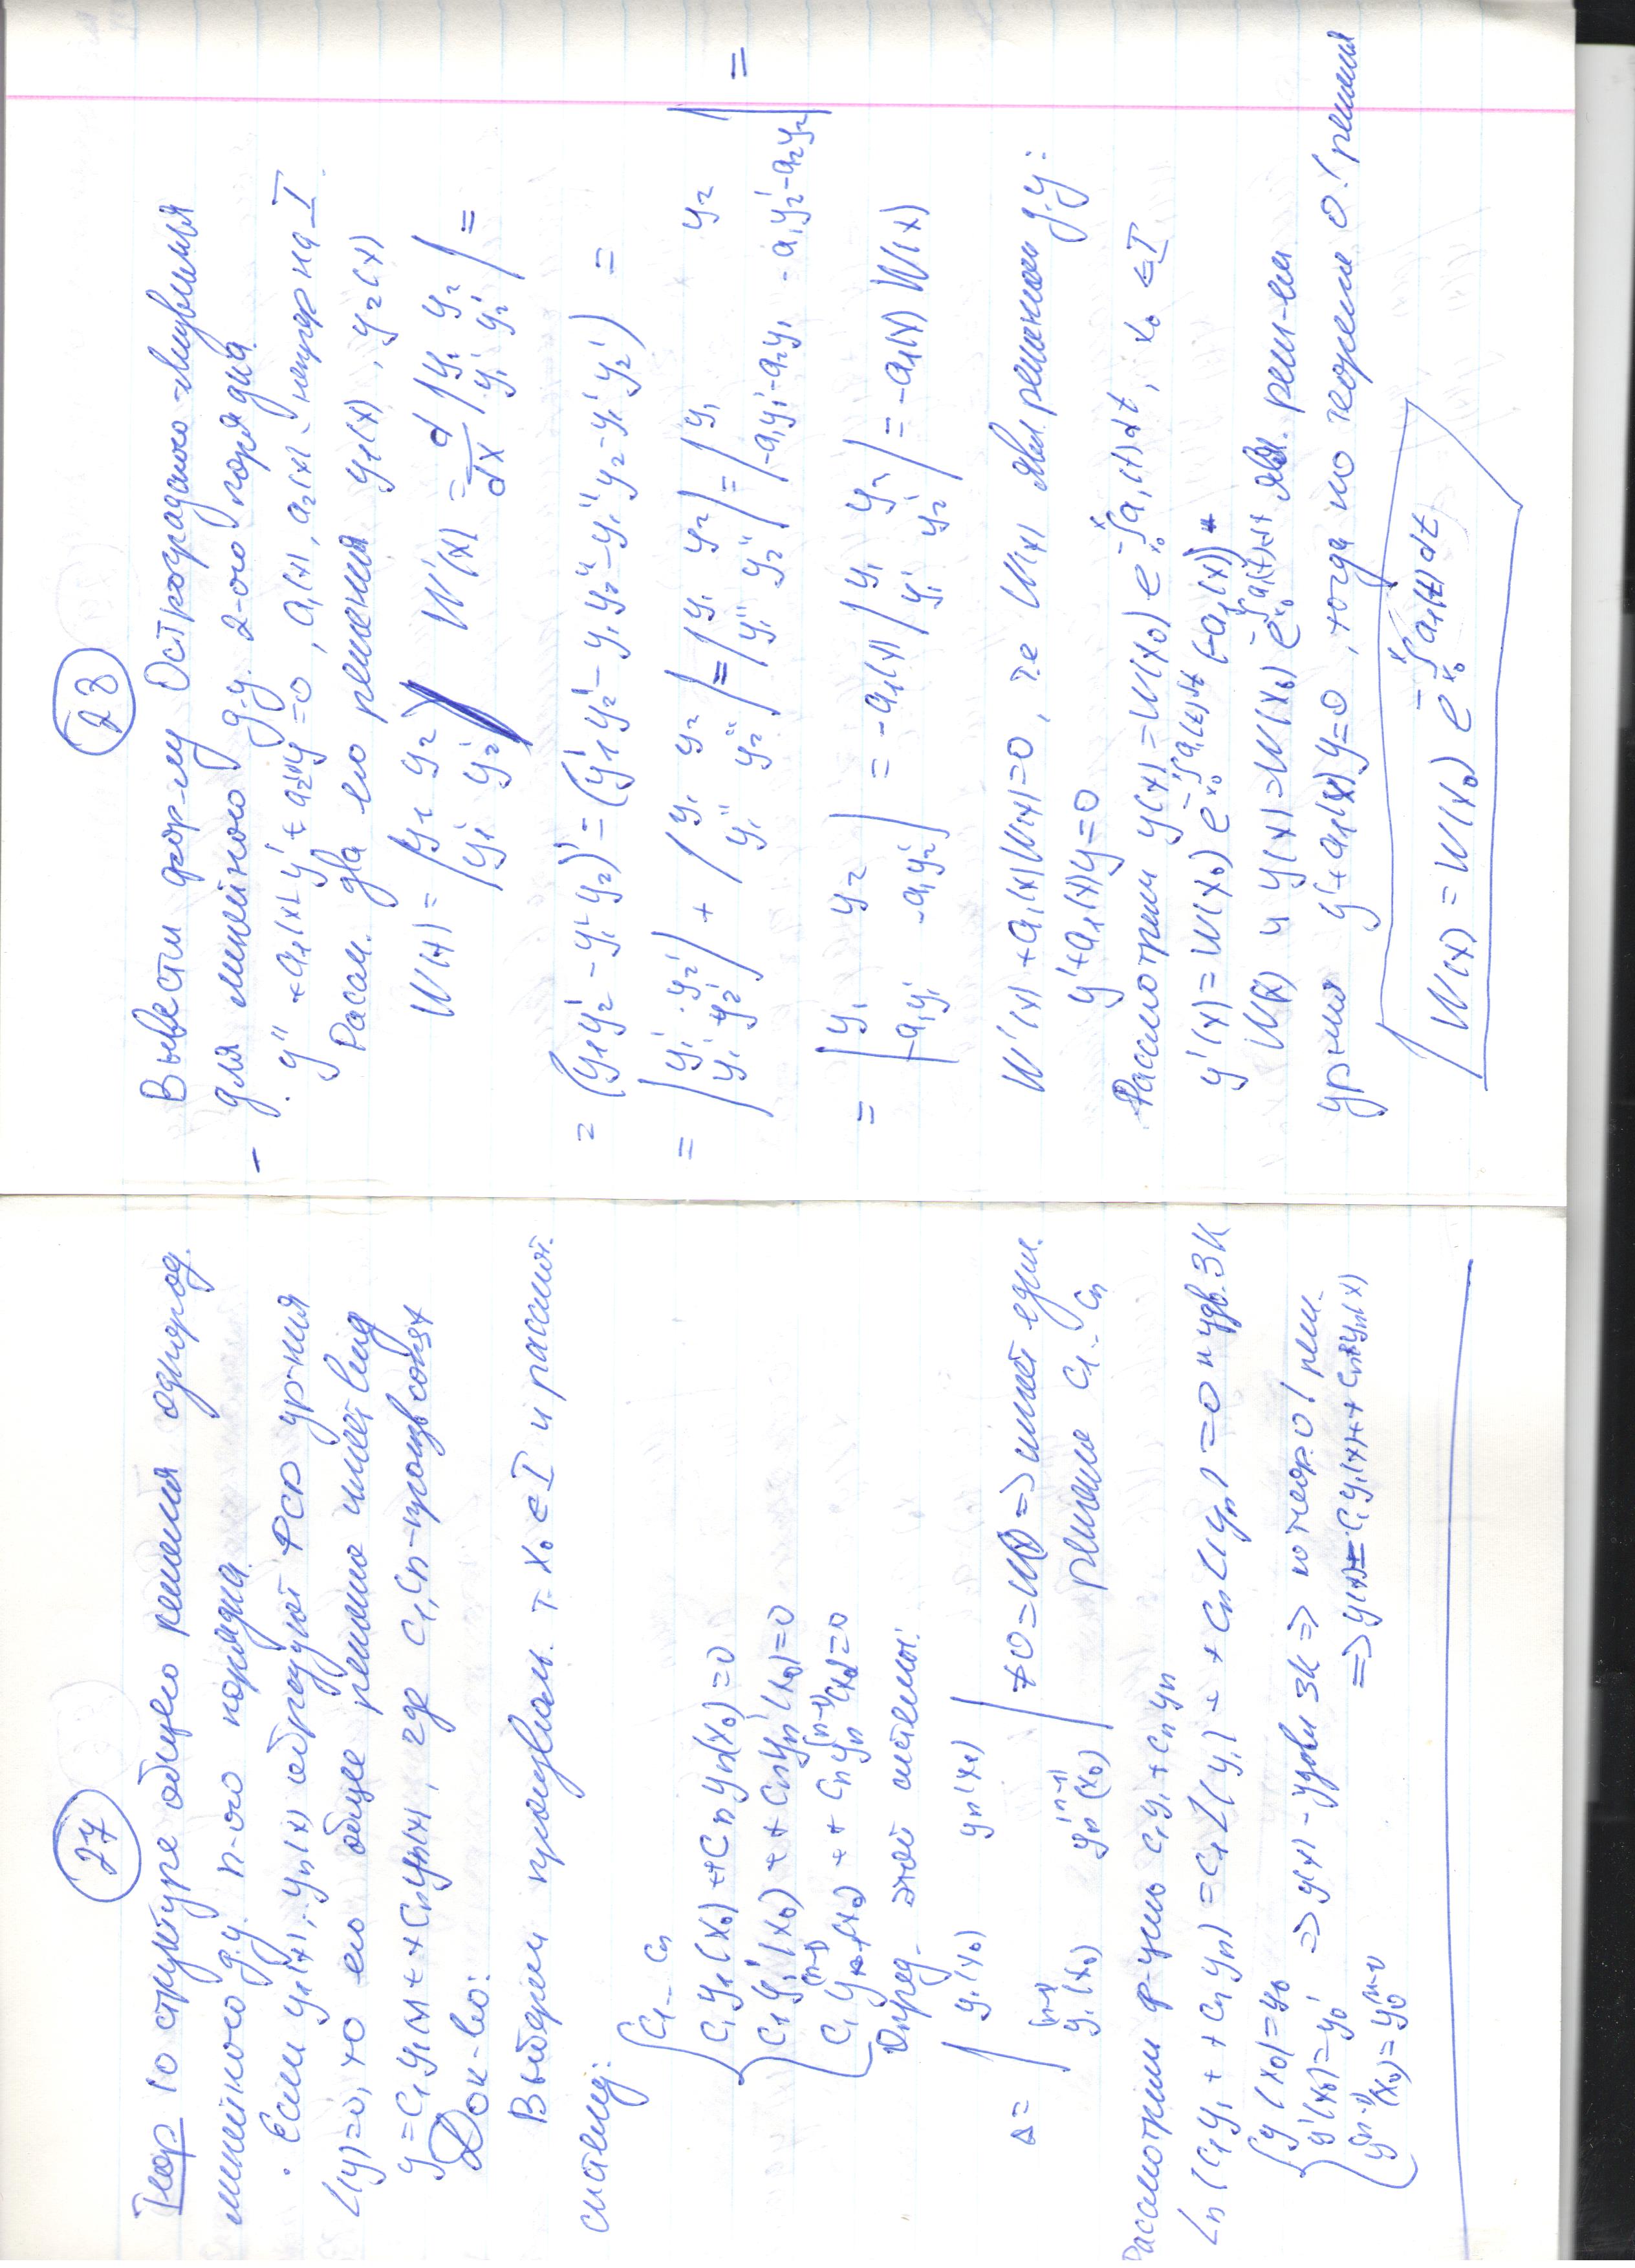 27
Теор 10 структуре общего решения однород.
линейного д.у. n-ого порядка.
. Если y₁(x),.. yₙ(x) образуют ФСР ур-ния
L(y)=0, то его общее решение имеет вид
y=C₁y₁(x)+ +Cₙyₙ(x), где C₁, Cₙ-произв const
Док-во:
Выберем произвольн. т. x₀ ∈ I и рассмот.
систему:
C₁.. Cₙ
C₁y₁(x₀)+ +Cₙyₙ(x₀)=0
C₁y₁'(x₀)+ + Cₙyₙ'(x₀)=0
C₁y₁⁽ⁿ⁻¹⁾(x₀)+ + Cₙyₙ⁽ⁿ⁻¹⁾(x₀)=0
Опред- этой системы:
Δ= | y₁(x₀) yₙ(x₀)
y₁⁽ⁿ⁻¹⁾(x₀) yₙ⁽ⁿ⁻¹⁾(x₀) | ≠0=W() => имеет един.
решение C₁.. Cₙ
Рассмотрим ф-цию C₁y₁+CₙYₙ
Lₙ(C₁y₁+ +Cₙyₙ)=C₁L(y₁)+ + CₙL(yₙ)=0 и удв. ЗК
y(x₀)=y₀
y'(x₀)=y₀' => y(x) - удовл ЗК => по теор 0! реш.
y⁽ⁿ⁻¹⁾(x₀)=y₀⁽ⁿ⁻¹⁾ => y(x)=C₁y₁(x)+ + Cₙyₙ(x)
28
Вывести форм-лу Остроградского-Лиувилля
для линейного д.у. 2-ого порядка.
y''+a₁(x)y'+a₂y=0, a₁(x), a₂(x) - непрер на I.
Рассм. два его решения y₁(x), y₂(x)
W(x)= | y₁ y₂ y₁' y₂' | W'(x) = d/dx | y₁ y₂ y₁' y₂' | =
= (y₁y₂'-y₁'y₂)'=(y₁'y₂'-y₁y₂''-y₁''y₂-y₁'y₂') =
= | y₁' y₂' y₁' y₂' | + | y₁ y₂ y₁'' y₂'' | = | y₁ y₂ y₁'' y₂'' | = | y₁ y₂ -a₁y₁'-a₂y₁ -a₁y₂'-a₂y₂ | =
= | y₁ y₂ -a₁y₁' -a₁y₂' | = -a₁(x) | y₁ y₂ y₁' y₂' | = -a₁(x) W(x)
W'(x)+a₁(x)W(x)=0, т.е W(x) явл решением д.у:
y'+a₁(x)y=0
Рассмотрим y(x)=W(x₀) e^(-∫ₓ₀ˣ a₁(t)dt), x₀ ∈ I
y'(x)=W(x₀) e^(-∫ₓ₀ˣ a₁(t)dt) (-a₁(x))
W(x) и y(x)=W(x₀) e^(-∫ₓ₀ˣ a₁(t)dt) явл. реш-ем
ур-ния y'+a₁(x)y=0, тогда по теореме 0! решения
W(x)=W(x₀) e^(-∫ₓ₀ˣ a₁(t)dt)